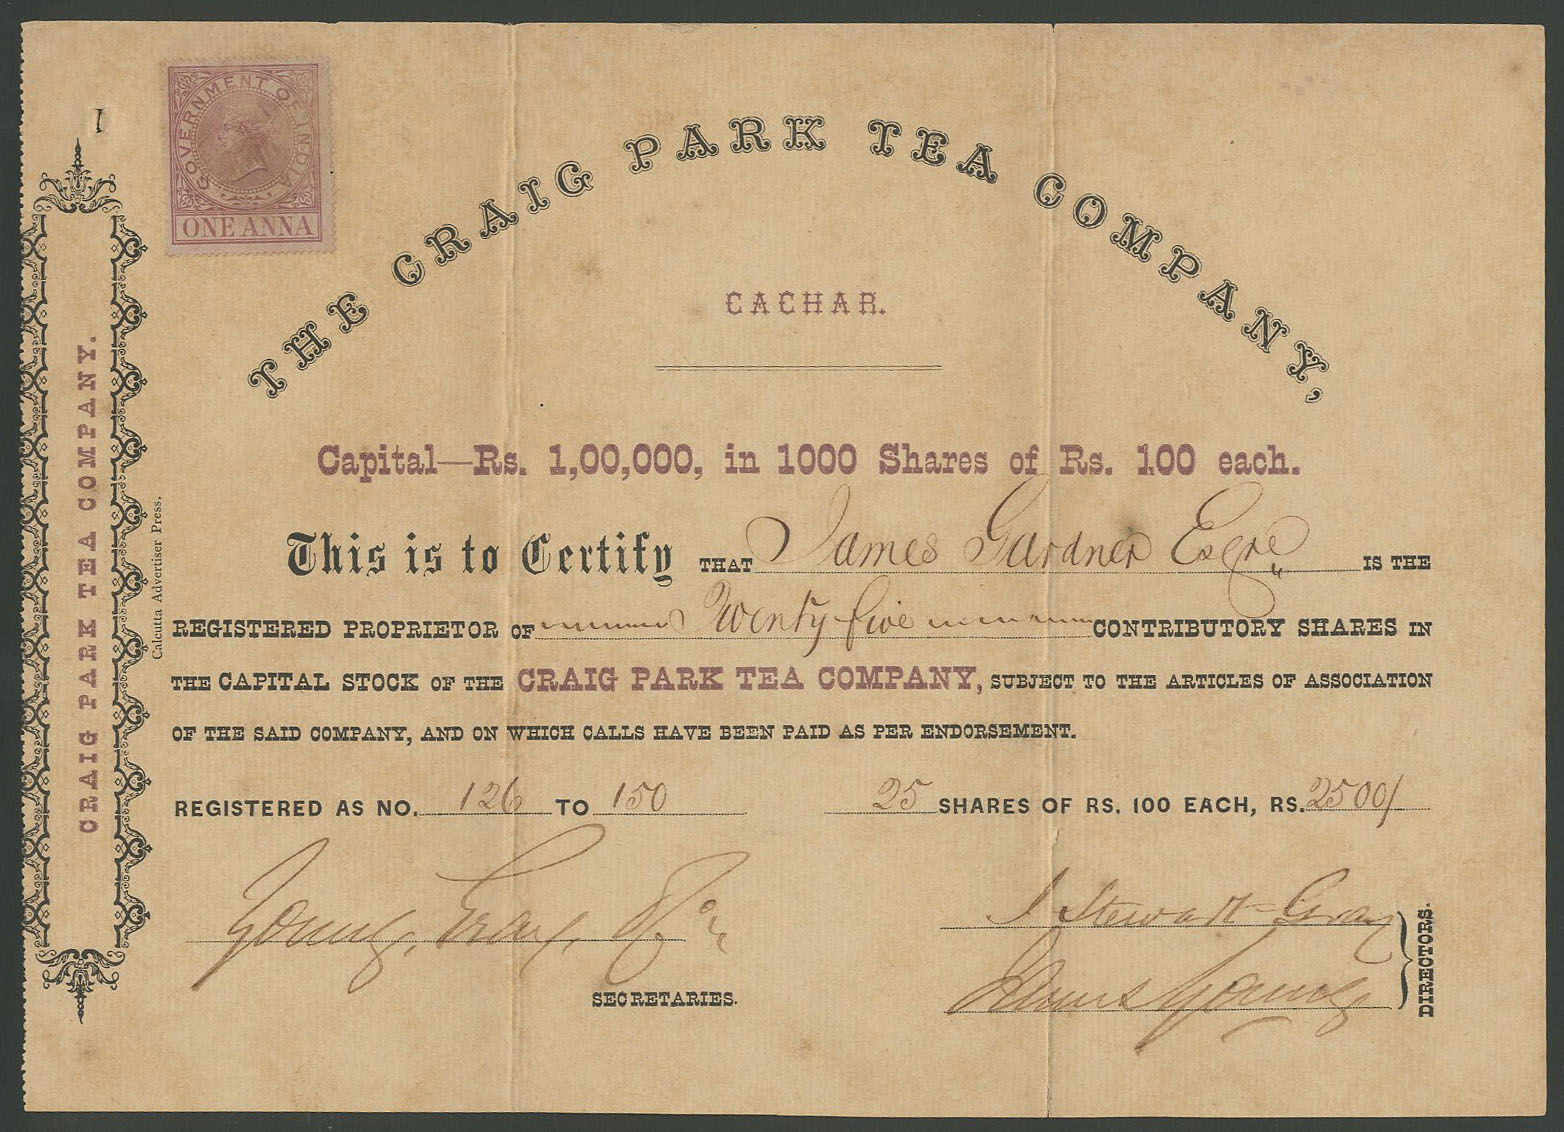 GOVERNMENT OF INDIA
ONE ANNA
THE CRAIG PARK TEA COMPANY,
CACHAR.
Capital—Rs. 1,00,000, in 1000 Shares of Rs. 100 each.
This is to Certify THAT James Gardner Esqre IS THE
REGISTERED PROPRIETOR OF Twenty five CONTRIBUTORY SHARES IN
THE CAPITAL STOCK OF THE CRAIG PARK TEA COMPANY, SUBJECT TO THE ARTICLES OF ASSOCIATION
OF THE SAID COMPANY, AND ON WHICH CALLS HAVE BEEN PAID AS PER ENDORSEMENT.
REGISTERED AS NO. 126 TO 150 25 SHARES OF RS. 100 EACH, RS. 2500/
Young, Gray, & Co
SECRETARIES.
J Stewart Gray
James Young
DIRECTORS.
CRAIG PARK TEA COMPANY.
Calcutta Advertiser Press.